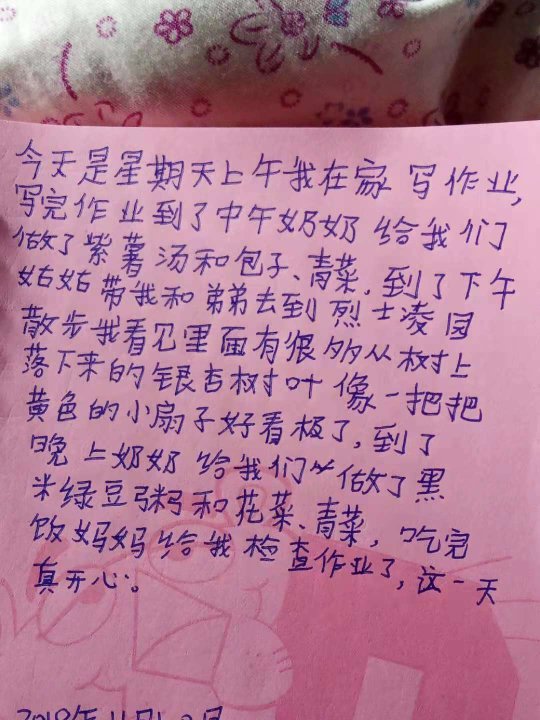 今天是星期天上午我在家写作业,
写完作业到了中午奶奶给我们
做了紫薯汤和包子、青菜,到了下午
姑姑带我和弟弟去到烈士凌园
散步我看见里面有很多从树上
落下来的银杏树叶像一把把
黄色的小扇子好看极了,到了
晚上奶奶给我们做了黑
米绿豆粥和花菜、青菜,吃完
饭妈妈给我检查作业了,这一天
真开心。